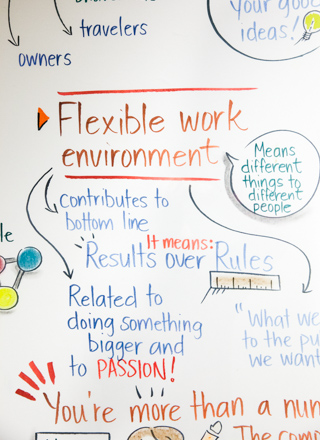 travelers
owners
your good
ideas!
Flexible work
environment
Means
different
things to
different
people
Contributes to
bottom line
It means:
Results over Rules
Related to
doing something
bigger and
to PASSION!
"What we
to the pu
we want
You're more than a num
The comp